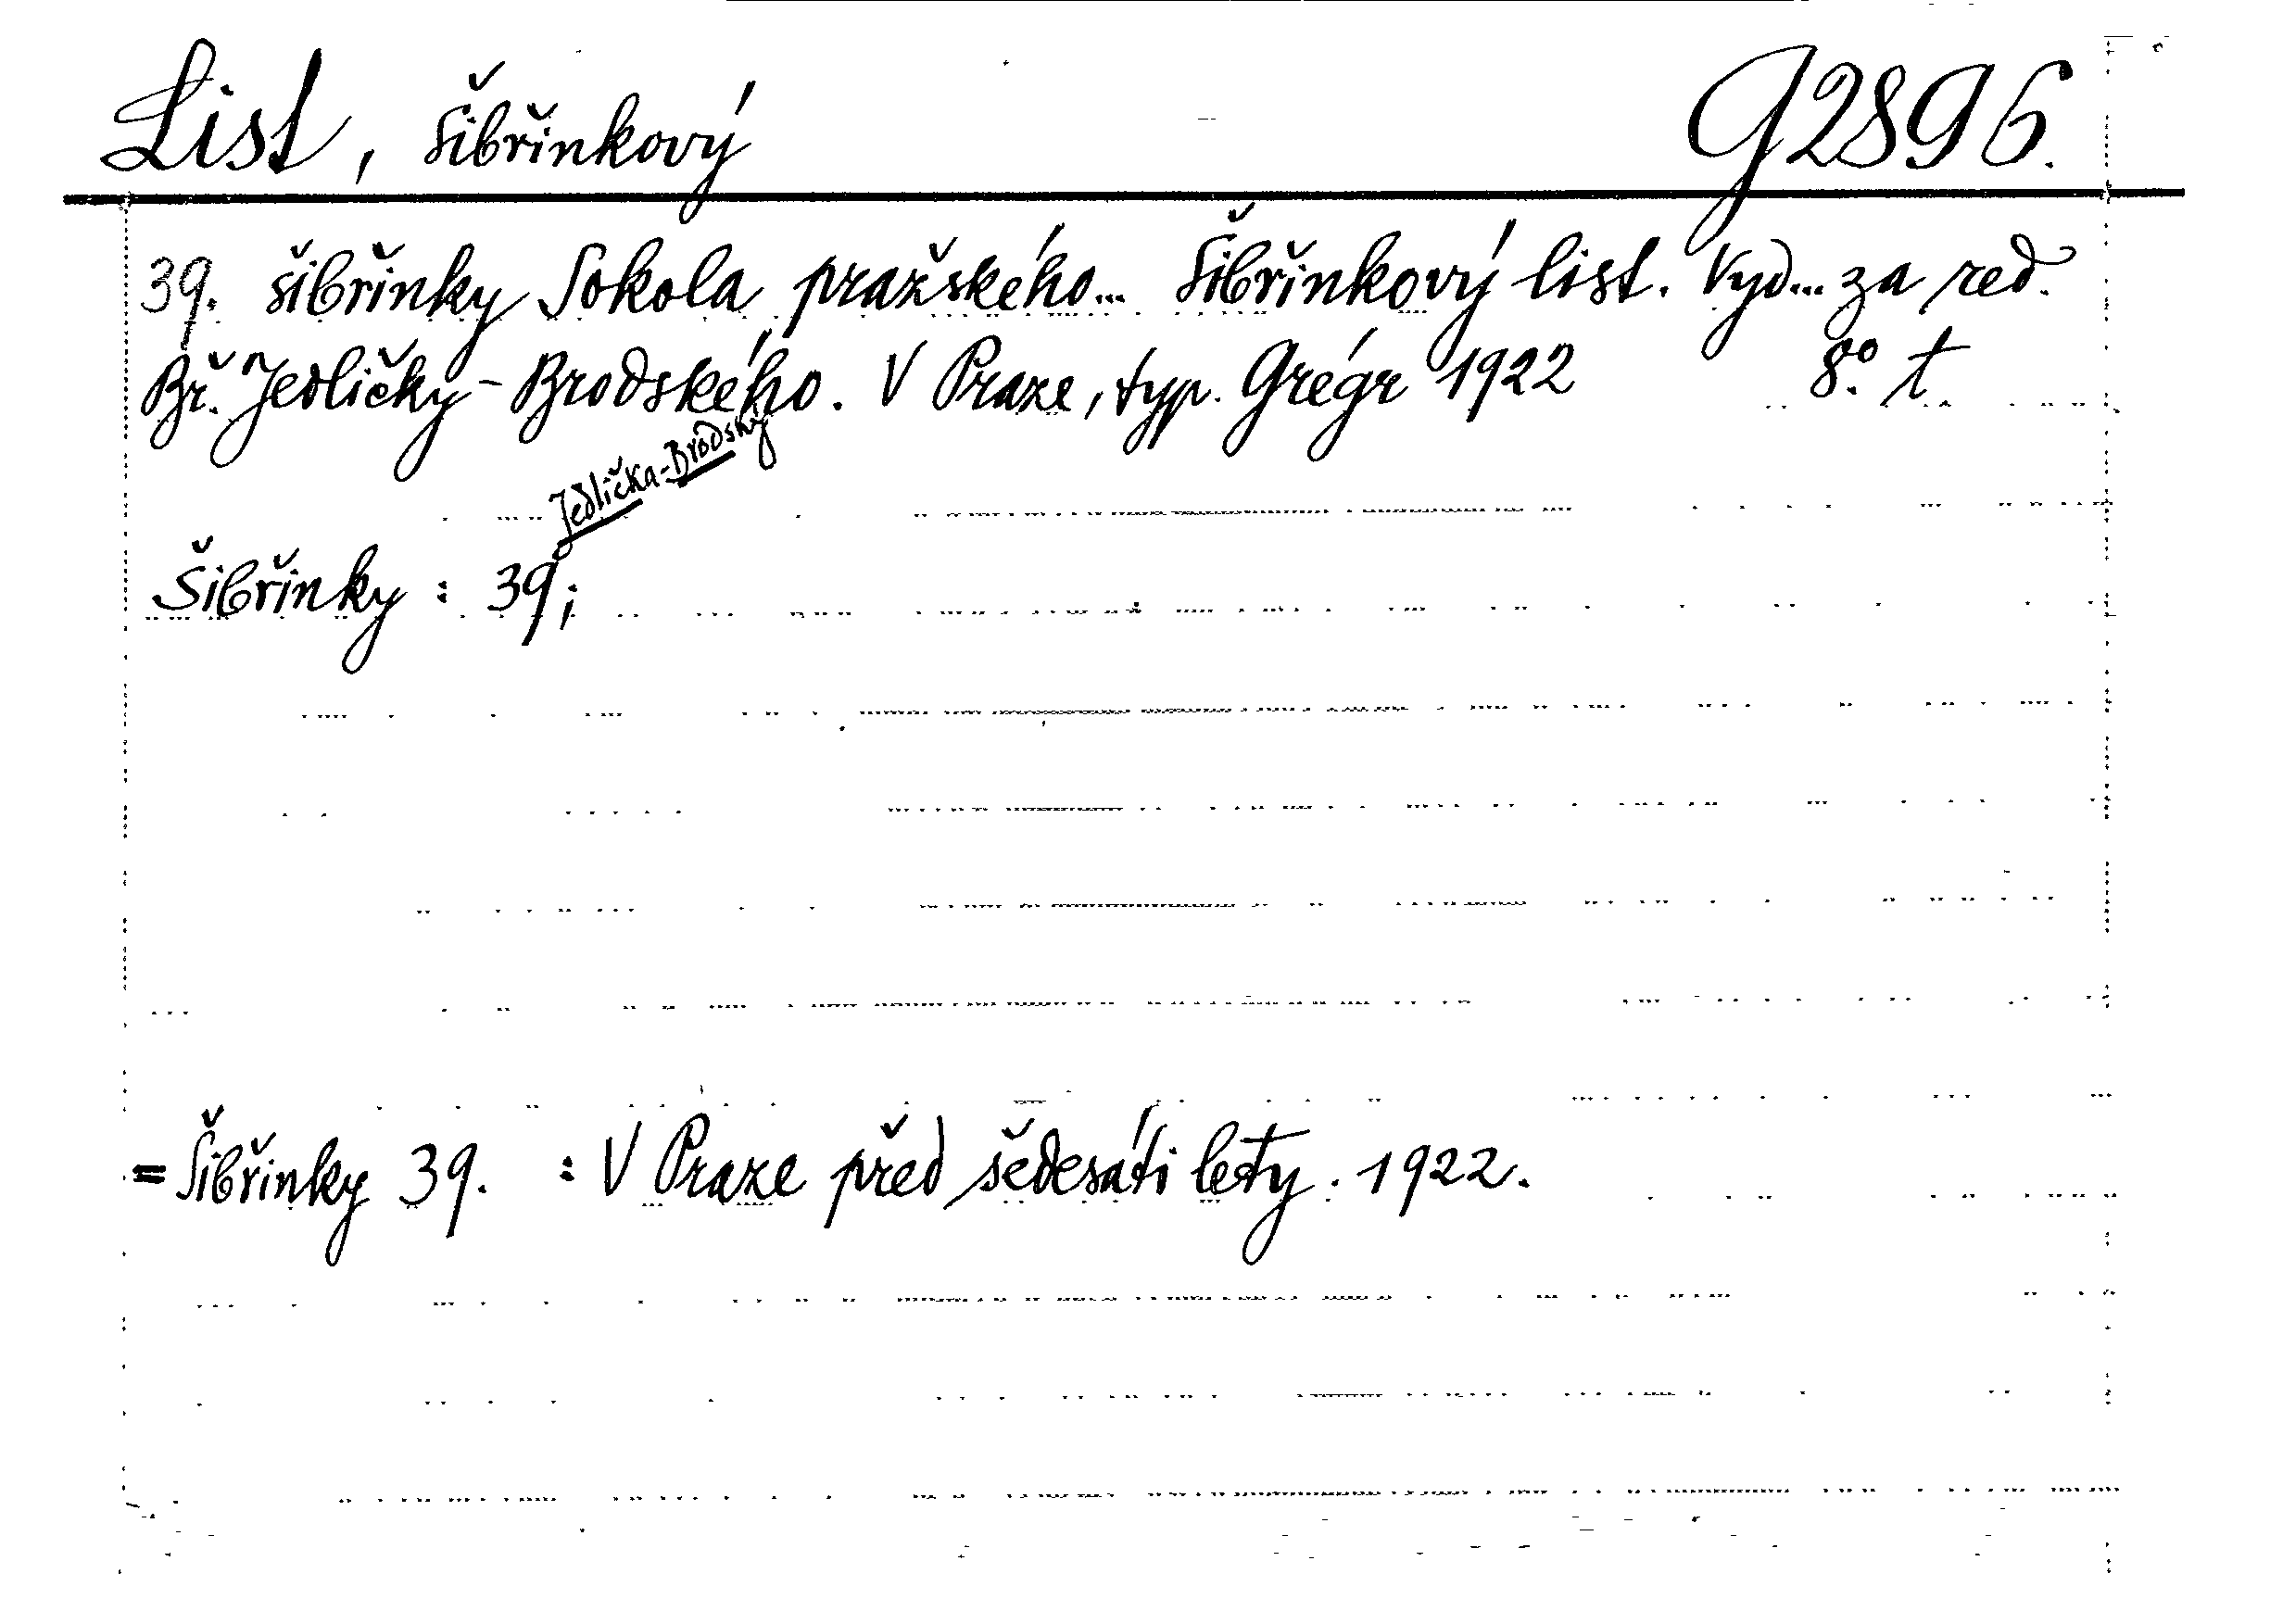 List, Šibřinkový G 2896.
39. šibřinky Sokola pražského... Šibřinkový list. Vyd... za red.
Bř. Jedličky-Brodského. V Praze, typ. Grégr 1922 8° t
Jedlička-Brodský
Šibřinky: 39;
= Šibřinky 39. : V Praze před šedesáti lety. 1922.